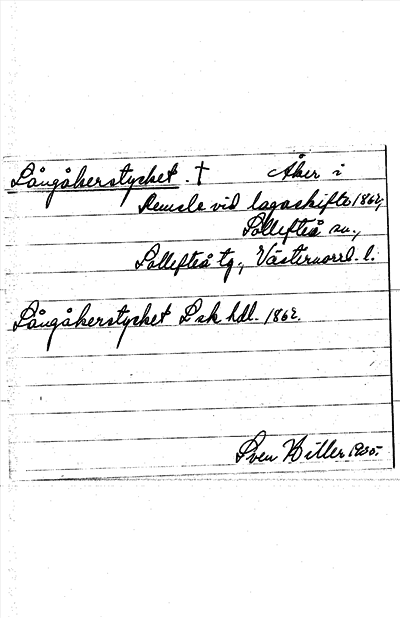 Långåkerstycket. † Åker i
Remsle vid lagaskifte 1862,
Sollefteå sn.,
Sollefteå tg., Västernorrl. l.
Långåkerstycket Lsk hdl. 1862.
Sven Hiller 1930.